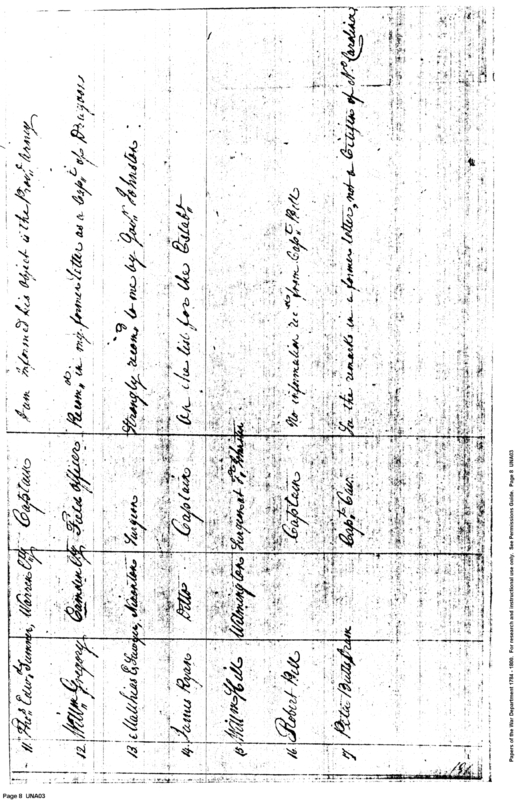 11. Thos. Edwd. Sumner, Warren Cty Captain I am informed his object is the Provl. Army
12. Willm. Gregory Camden Cty Field officer Recomd. in my former letter as a Capt. of Dragoons
13. Matthias E. Sawyer, Surgeon Strongly recomd. to me by Govr. Johnston.
14. James Ryan Ditto Captain On the list for the Establt.
15 Willm Hill Wilmington Surgeon at Ft. Johnston
16. Robert Bell Captain No information recd. from Capt. Bell
17 Peter Captn. Cav. In the remarks in a former letter, not a Citizen of No. Carolina
Page 8 UNA03
Papers of the War Department 1784 - 1800. For research and instructional use only. See Permissions Guide. Page 8 UNA03